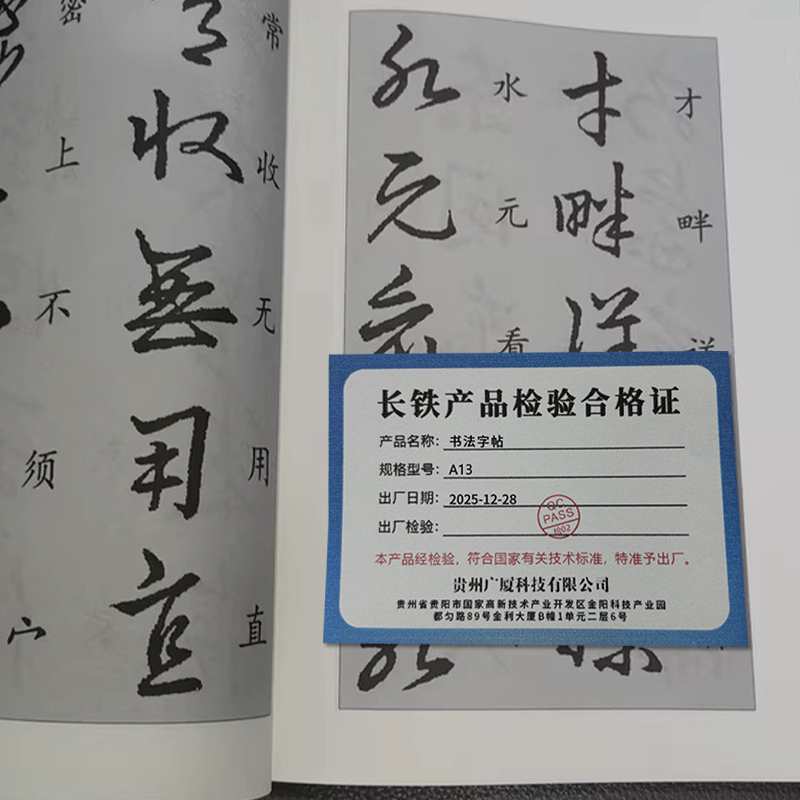 常
收
无
用
直
收
無
用
直
密
上
不
须
宀
才
畔
详
才
畔
详
水
元
看
水
元
看
长铁产品检验合格证
产品名称：书法字帖
规格型号：A13
出厂日期：2025-12-28
出厂检验：
QC
PASS
1002
本产品经检验，符合国家有关技术标准，特准予出厂。
贵州广厦科技有限公司
贵州省贵阳市国家高新技术产业开发区金阳科技产业园
都匀路89号金利大厦B幢1单元二层6号